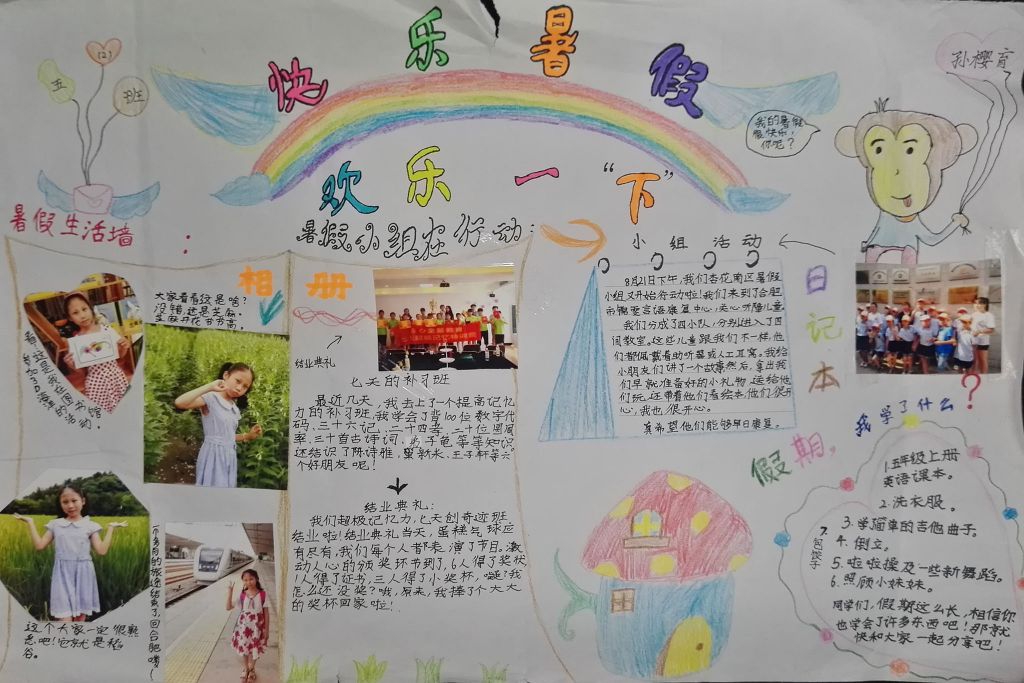 快乐暑假
五
(2)
班
孙樱育
我的暑假
很快乐,
你呢?
欢乐一“下”
暑假生活墙:
暑假小组在行动:
小组活动
相册
大家看看这是啥?
没错,这是芝麻,
芝麻开花节节高。
结业典礼
七天的补习班
最近几天,我去上了一个提高记忆
力的补习班,我学会了背100位数字代
码、三十六记、二十四孝、二十位国
家、三十首古诗词、弟子规等等知识,
还结识了陈诗雅、王子轩等六
个好朋友呢!
结业典礼:
我们超极记忆力,七天创奇迹班
结业啦!结业典礼当天,蛋糕气球应
有尽有,我们每个人都表演了节目。激
动人心的颁奖环节到了,6人得了奖状
1人得了证书,三人得了小奖杯,咦?我
怎么还没奖?哦,原来,我捧了大大
的奖杯回家啦!
这个大家一定很熟
悉吧!它就是稻
谷。
一个多月的旅途结束了,回合肥喽!
8月21日下午,我们杏花南区暑假
小组又开始行动啦!我们来到了合肥
市锦雯言语康复中心,关心听障儿童。
我们分成了四小队,分别进入了四
间教室。这些儿童跟我们不一样,他
们都佩戴着助听器或人工耳蜗。我给
小朋友们讲了一个故事然后,拿出我
们早就准备好的小礼物送给他
们玩,还带着他们看绘本,他们很开
心,我也很开心。
真希望他们能够早日康复。
日记本
假期,我学了什么?
1.五年级上册
英语课本。
2.洗衣服。
3.学简单的吉他曲子。
4.倒立。
5.啦啦操及一些新舞蹈。
6.照顾小妹妹。
7.包饺子
同学们,假期这么长,相信你
也学会了许多东西吧!那就
快和大家一起分享吧!